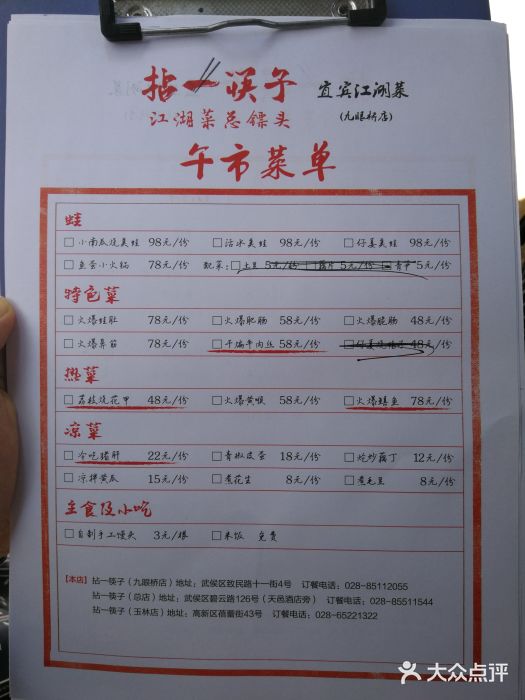 拈一筷子 宜宾江湖菜
江湖菜总镖头 (九眼桥店)
午市菜单
蛙
□小南瓜烧美蛙 98元/份 □活水美蛙 98元/份 □仔姜美蛙 98元/份
□鱼蛋小火锅 78元/份 配菜:□土豆 5元/份 □藕片 5元/份 □青笋 5元/份
特色菜
□火爆蛙肚 78元/份 □火爆肥肠 58元/份 □火爆脆肠 48元/份
□火爆鼻筋 78元/份 □干煸牛肉丝 58元/份 □仔姜烧 48元/份
热菜
□荔枝烧花甲 48元/份 □火爆黄喉 58元/份 □火爆鳝鱼 78元/份
凉菜
□冷吃猪肝 22元/份 □青椒皮蛋 18元/份 □炝炒藕丁 12元/份
□凉拌黄瓜 15元/份 □煮花生 8元/份 □煮毛豆 8元/份
主食及小吃
□自制手工馒头 3元/根 □米饭 免费
【本店】拈一筷子(九眼桥店)地址:武侯区致民路十一街4号 订餐电话:028-85112055
拈一筷子(总店)地址:武侯区碧云路126号(天邑酒店旁) 订餐电话:028-85511544
拈一筷子(玉林店)地址:高新区蓓蕾街43号 订餐电话:028-65221322
大众点评